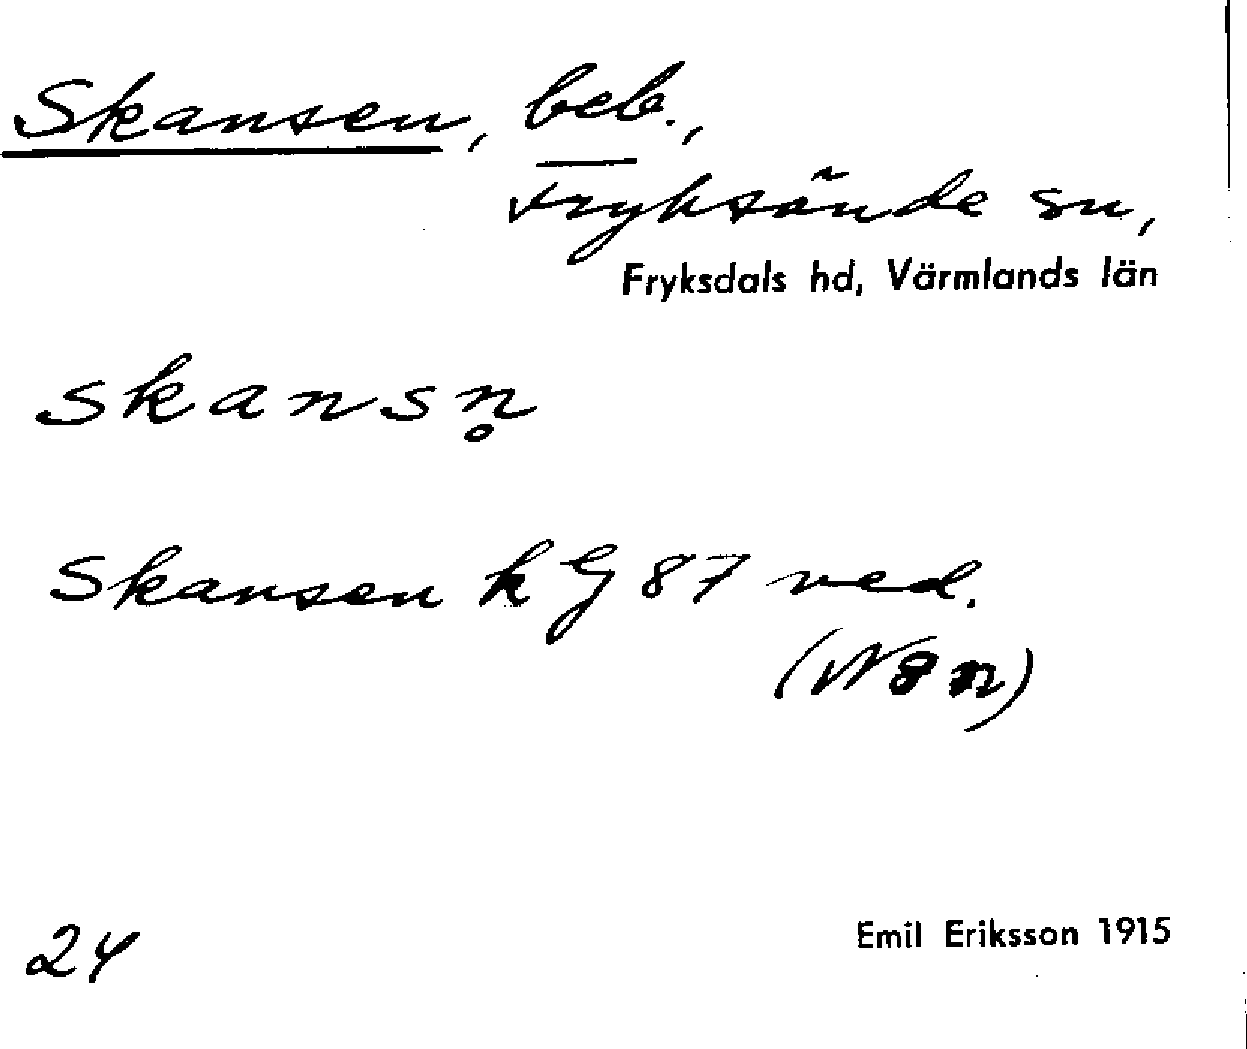 Skansen, beb.,
Fryksände sn,
Fryksdals hd, Värmlands län
skansn̥
Skansen k G 87 ved.
24
Emil Eriksson 1915